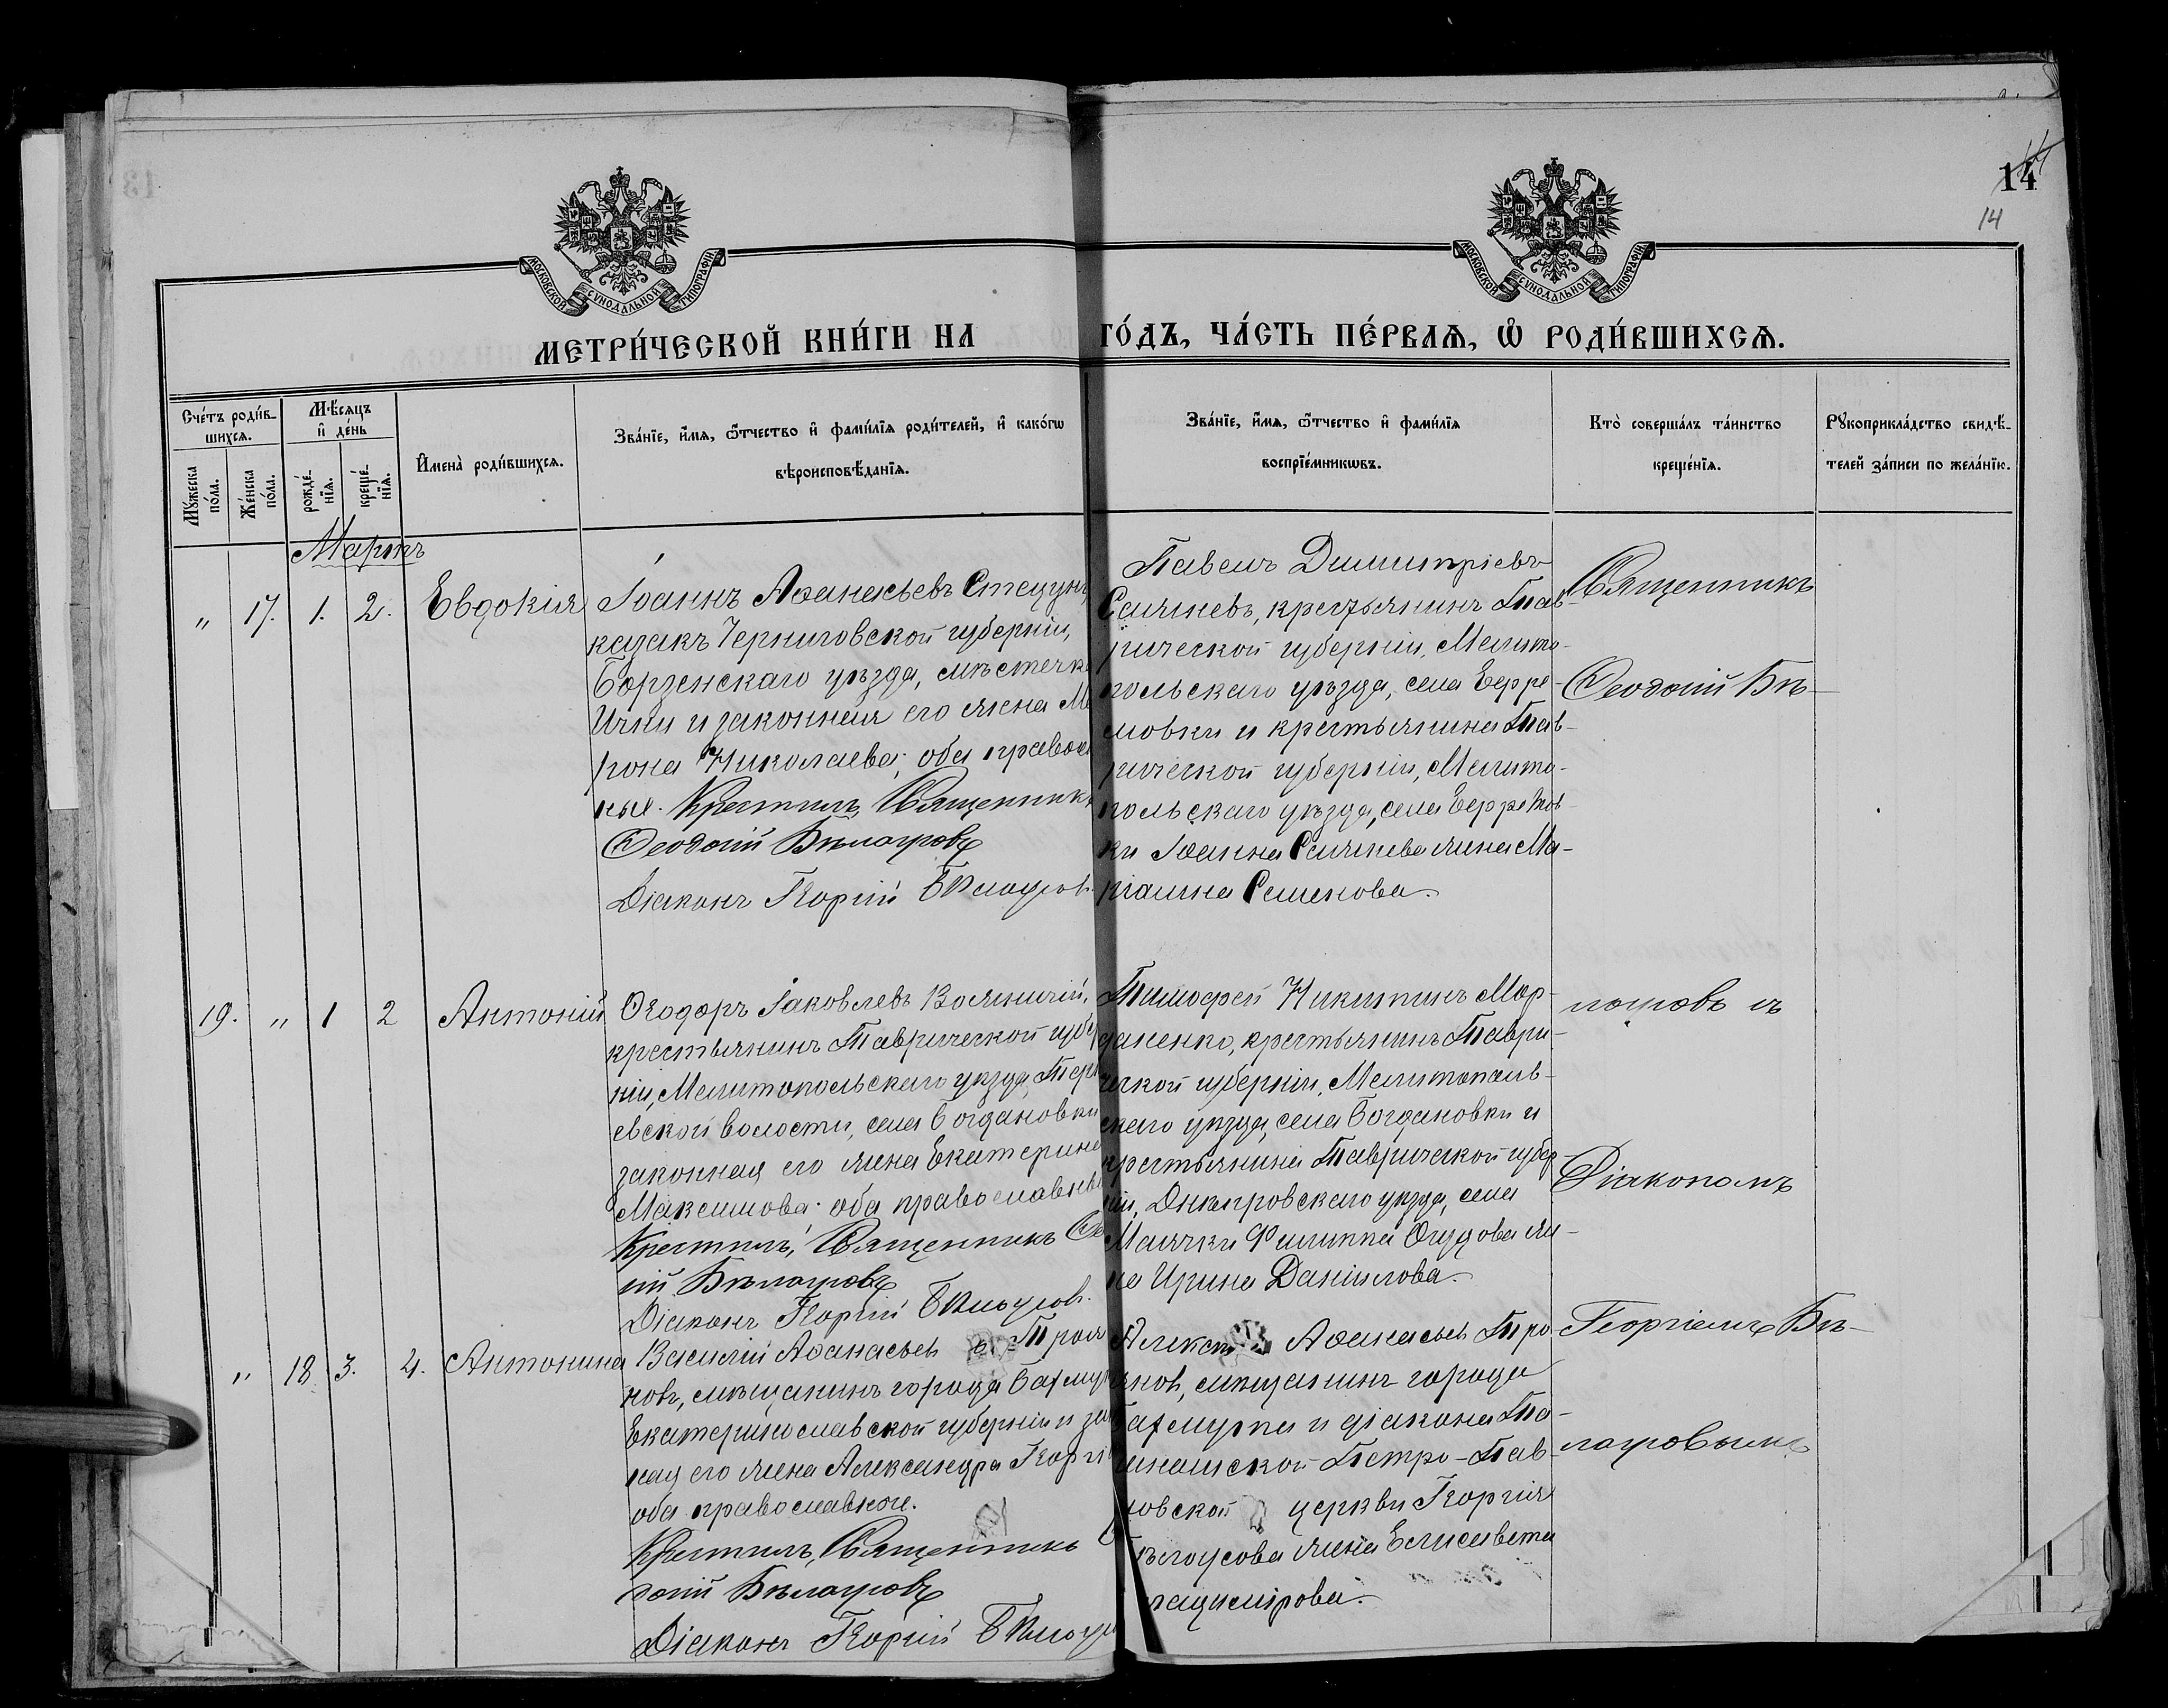 14
14
МОСКОВСКОЙ СУНОДАЛЬНОЙ ТИПОГРАФІИ
МОСКОВСКОЙ СУНОДАЛЬНОЙ ТИПОГРАФІИ
МЕТРИ́ЧЕСКОЙ КНИ́ГИ НА ГО́ДЪ, ЧА́СТЬ ПЕ́РВАѦ, Ѡ РОДИ́ВШИХСѦ.
Сче́тъ роди́в-
шихсѧ.
Мѣ́сѧцъ
и҆ де́нь
Мꙋ́жеска по́ла.
Же́нска по́ла.
рожде́-
нїѧ.
креще́-
нїѧ.
И҆мена̀ роди́вшихсѧ.
Зва́нїе, и҆́мѧ, ѻ҆́тчество и҆ фами́лїѧ роди́телей, и҆ како́гѡ
вѣроисповѣ́данїѧ.
Зва́нїе, и҆́мѧ, ѻ҆́тчество и҆ фами́лїѧ
воспрїе́мникѡвъ.
Кто̀ соверша́лъ та́инство
креще́нїѧ.
Рꙋкоприкла́дство свидѣ́-
телей за́писи по жела́нїю.
Мартъ
" 17. 1. 2. Евдокія
Іоаннъ Аѳанасьевъ Стецун
казакъ Черниговской губерніи,
Борзенскаго уѣзда, мѣстечк
Ични и законная его жена Ма
рона Николаева; оба правосл
ные. Крестилъ, Священникъ
Ѳеодосій Бѣлоусовъ
Діаконъ Георгій Бѣлоусов.
Павелъ Димитріевъ
Семиневъ, крестьянинъ Тав-
рической губерніи, Мелито-
польскаго уѣзда, села Ефре-
мовки и крестьянина Тав-
рической губерніи, Мелито-
польскаго уѣзда, села Ефремов-
ки Іоанна жена Ма-
ріамна Семенова.
Священникъ
Ѳеодосій Бѣ-
19. " 1 2 Антоній
Ѳеодоръ Іаковлевъ
крестьянинъ Таврической губер
ніи, Мелитопольскаго уѣзда,
евской волости, села Богдановки
законная его жена Екатерина
Максимова; оба православные
Крестилъ, Священникъ Ѳе
ій Бѣлоусовъ
Діаконъ Георгій Бѣлоусов.
Тимоѳей Никитинъ Мор-
даненко, крестьянинъ Таври-
ческой губерніи, Мелитополь-
скаго уѣзда, села Богдановки и
крестьянина Таврической губер-
ніи, Днѣпровскаго уѣзда, села
Маячки Филиппа жe-
на Ирина Даніилова.
лоусовъ съ
Діакономъ
" 18 3. 4. Антонина
Василій Аѳанасьев Троя
новъ, мѣщанинъ города Бахмута
Екатеринославской губерніи и зак
ная его жена Александра Георгі
оба православные.
Крестилъ, Священникъ
досій Бѣлоусовъ
Діаконъ Георгій Бѣлоус
Аѳанасьев Тро-
янов, мѣщанинъ города
Бахмута и діакона
Петро-Пав-
ловской церкви Георгія
Бѣлоусова жена Елисавета
Владимірова.
Георгіемъ Бѣ-
лоусовымъ